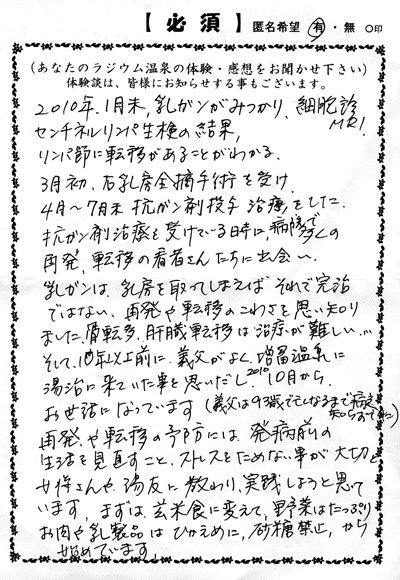 【必須】 匿名希望 有・無 ○印
(あなたのラジウム温泉の体験・感想をお聞かせ下さい)
体験談は、皆様にお知らせする事もございます。
2010年、1月末、乳ガンがみつかり、細胞診
MRI
センチネルリンパ生検の結果、
リンパ節に転移があることがわかる。
3月初、右乳房全摘手術を受け、
4月〜7月末 抗ガン剤投与 治療をした。
抗ガン剤治療を受けている時に、病院で多くの
再発、転移の患者さんたちに出会い、
乳ガンは、乳房を取ってしまえば それで完治
ではない、再発や転移のこわさを思い知り
ました。骨転移、肝臓転移は治療が難しい...
そして、10年以上前に、義父がよく、増富温泉に
湯治に来ていた事を思いだし、2010 10月から、
お世話になっています (義父は93歳で亡くなるまで病気
知らずで
再発や転移の予防には、発病前の
生活を見直すこと、ストレスをためない事が大切と
女将さんや、湯友に教わり、実践しようと思って
います。まずは、玄米食に変えて、野菜はたっぷり
お肉や乳製品はひかえめに、砂糖禁止、から
始めています。